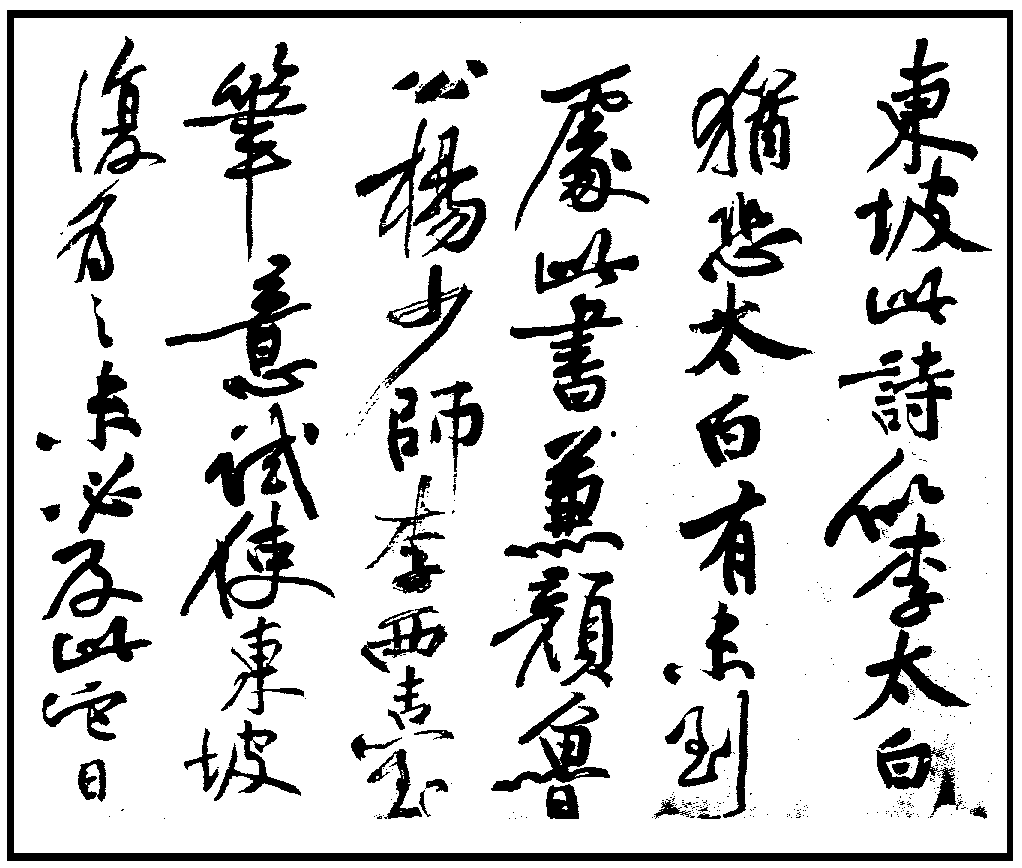 東坡此詩似李太白
猶恐太白有未到
處此書兼顏魯
公楊少師李西臺
筆意試使東坡
復為之未必及此它日